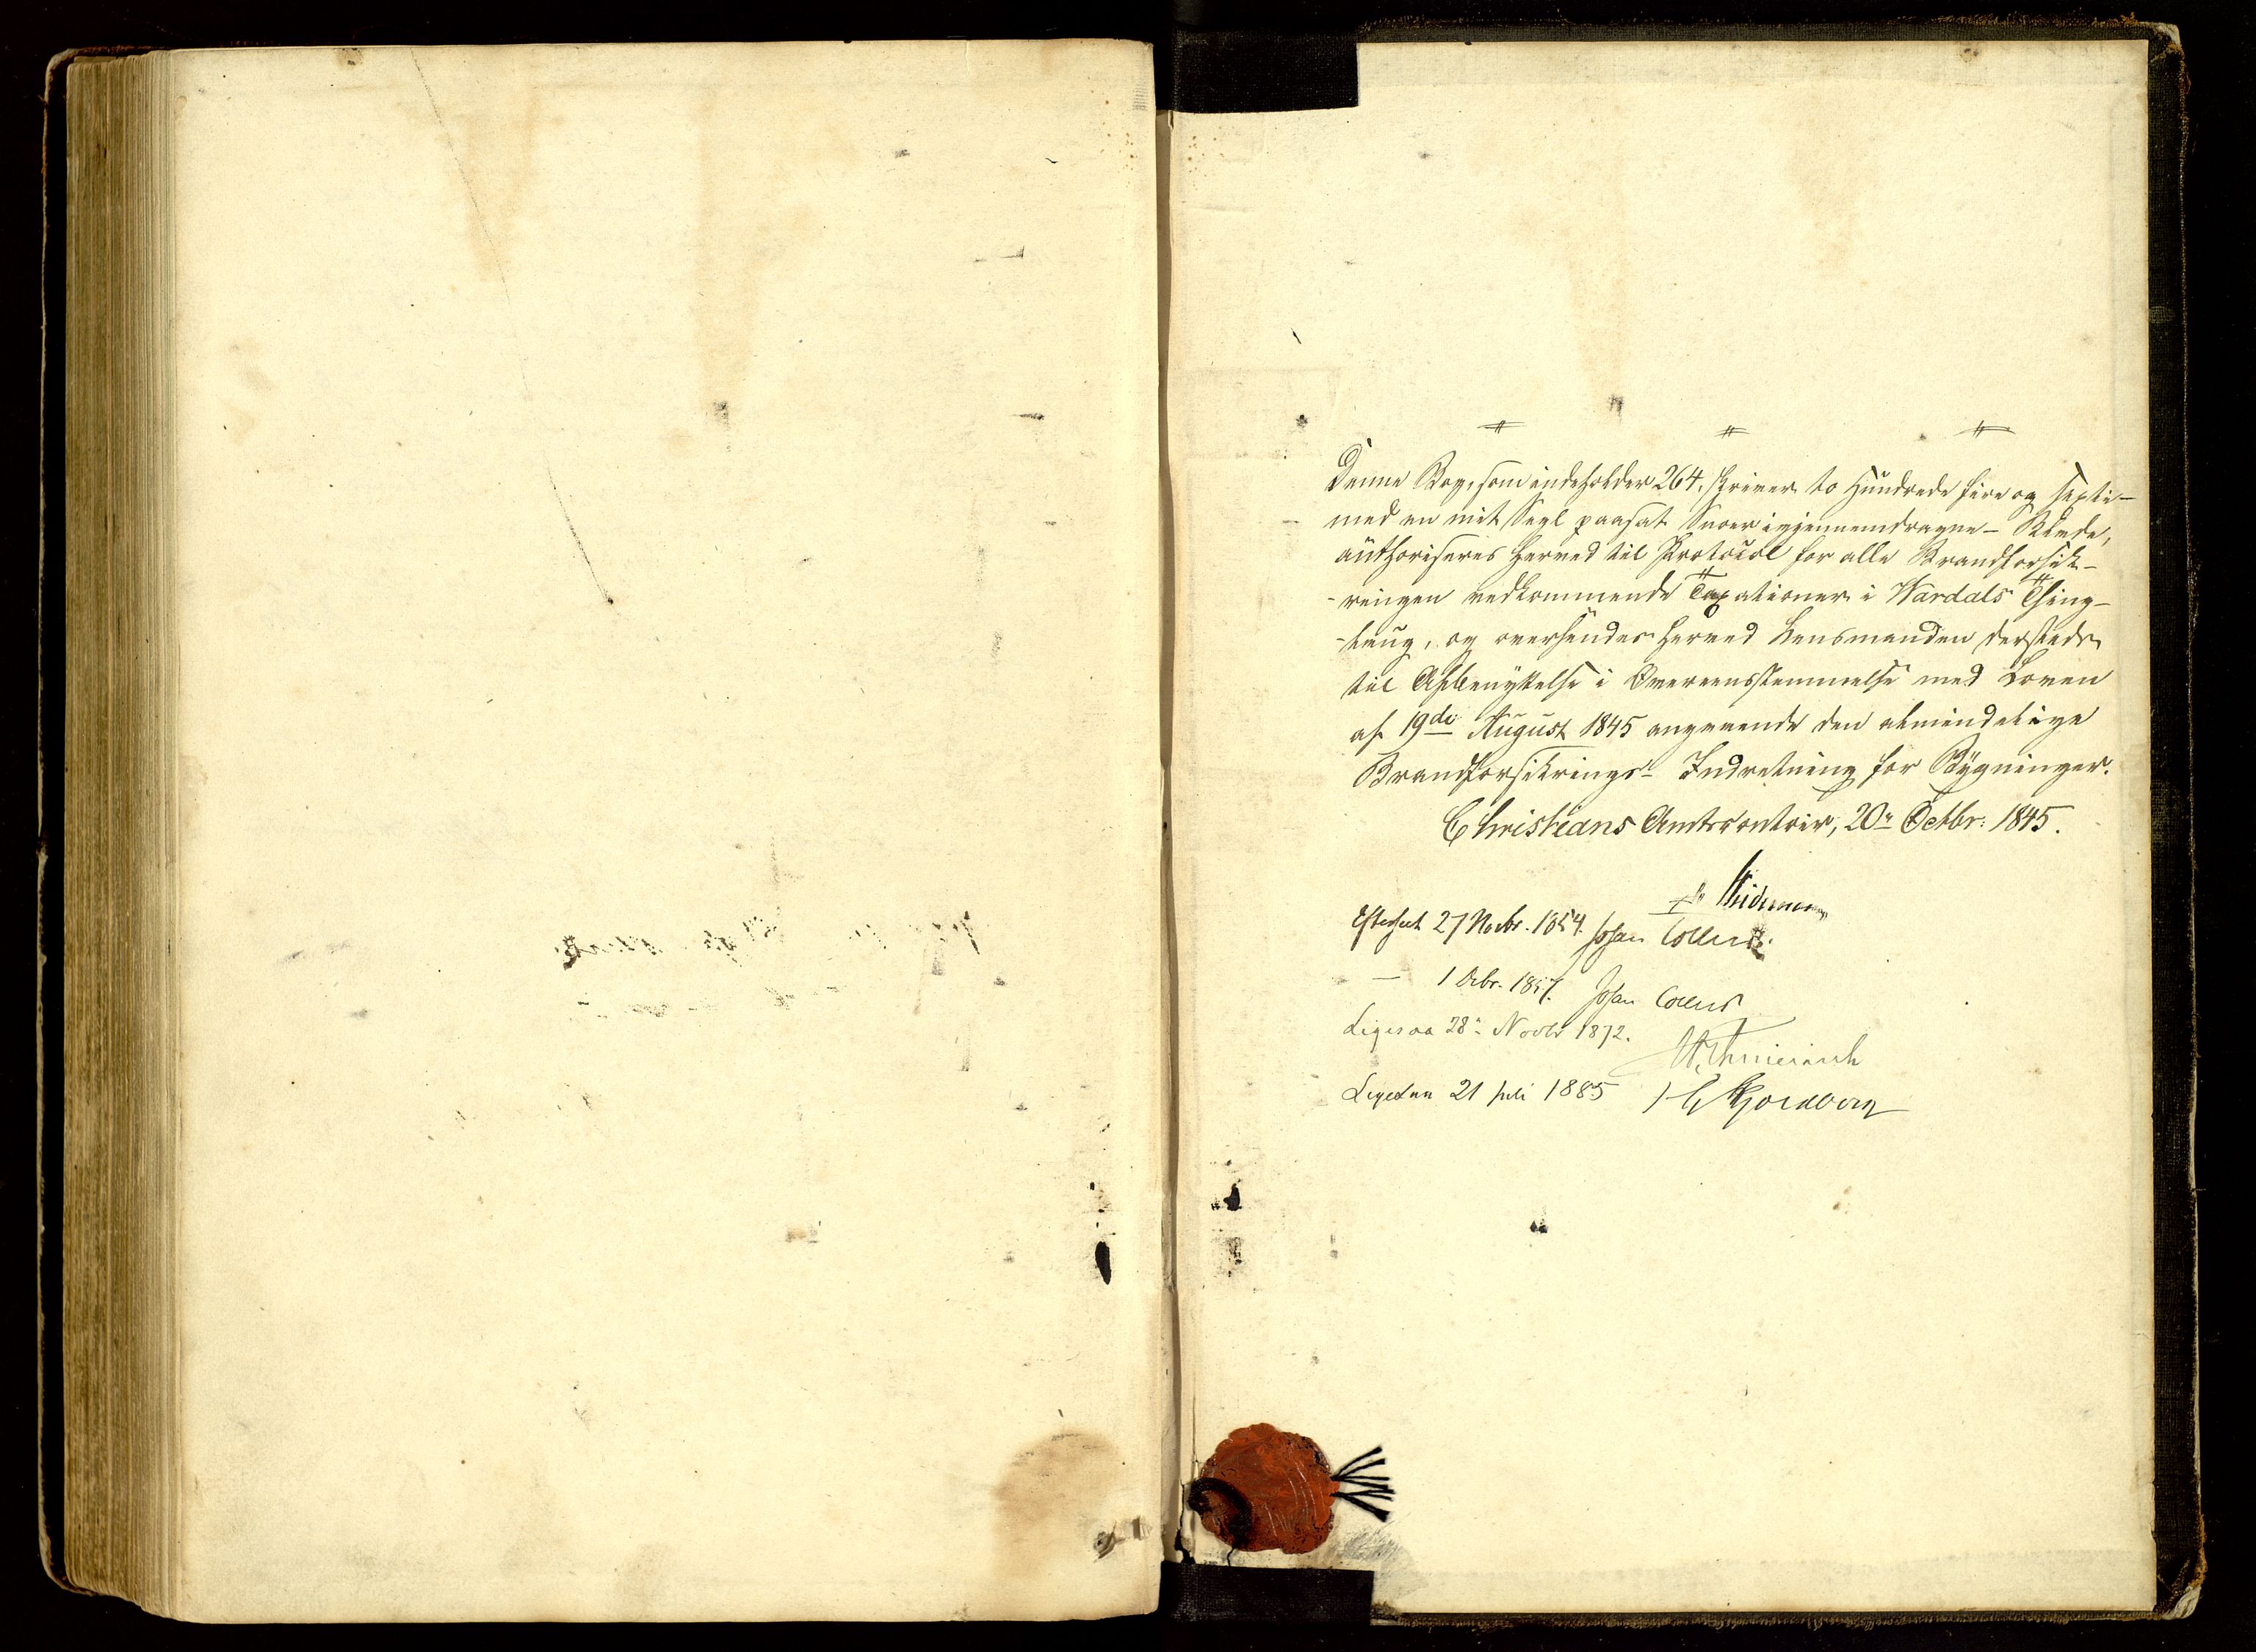 Denne Bog, som indeholder 264, skriver to Hundrede fire og sexti –
med en mit Segl paasat Snoer igjennemdragne – Blade,
authoriseres herved til Protocol for alle Brandforsik-
-ringen vedkommende Taxationer i Wardals Thing-
-laug, og oversendes herved Lensmanden dersteds
til Afbenyttelse i Overeensstemmelse med Loven
af 19de August 1845 angaaende den almindelige
Brandforsikrings- Indretning for Bygninger.
Christians Amtscontoir, 20 Octbr: 1845.
Efterseet 27 Novbr. 1854. Johan Collett
— 1 Johan Collett
Ligesaa 28 Novbr 1872.
Ligesaa 21 Juli 1885